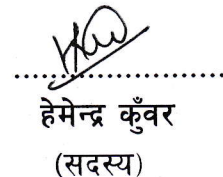 हेमेन्द्र कुँवर
(सदस्य)